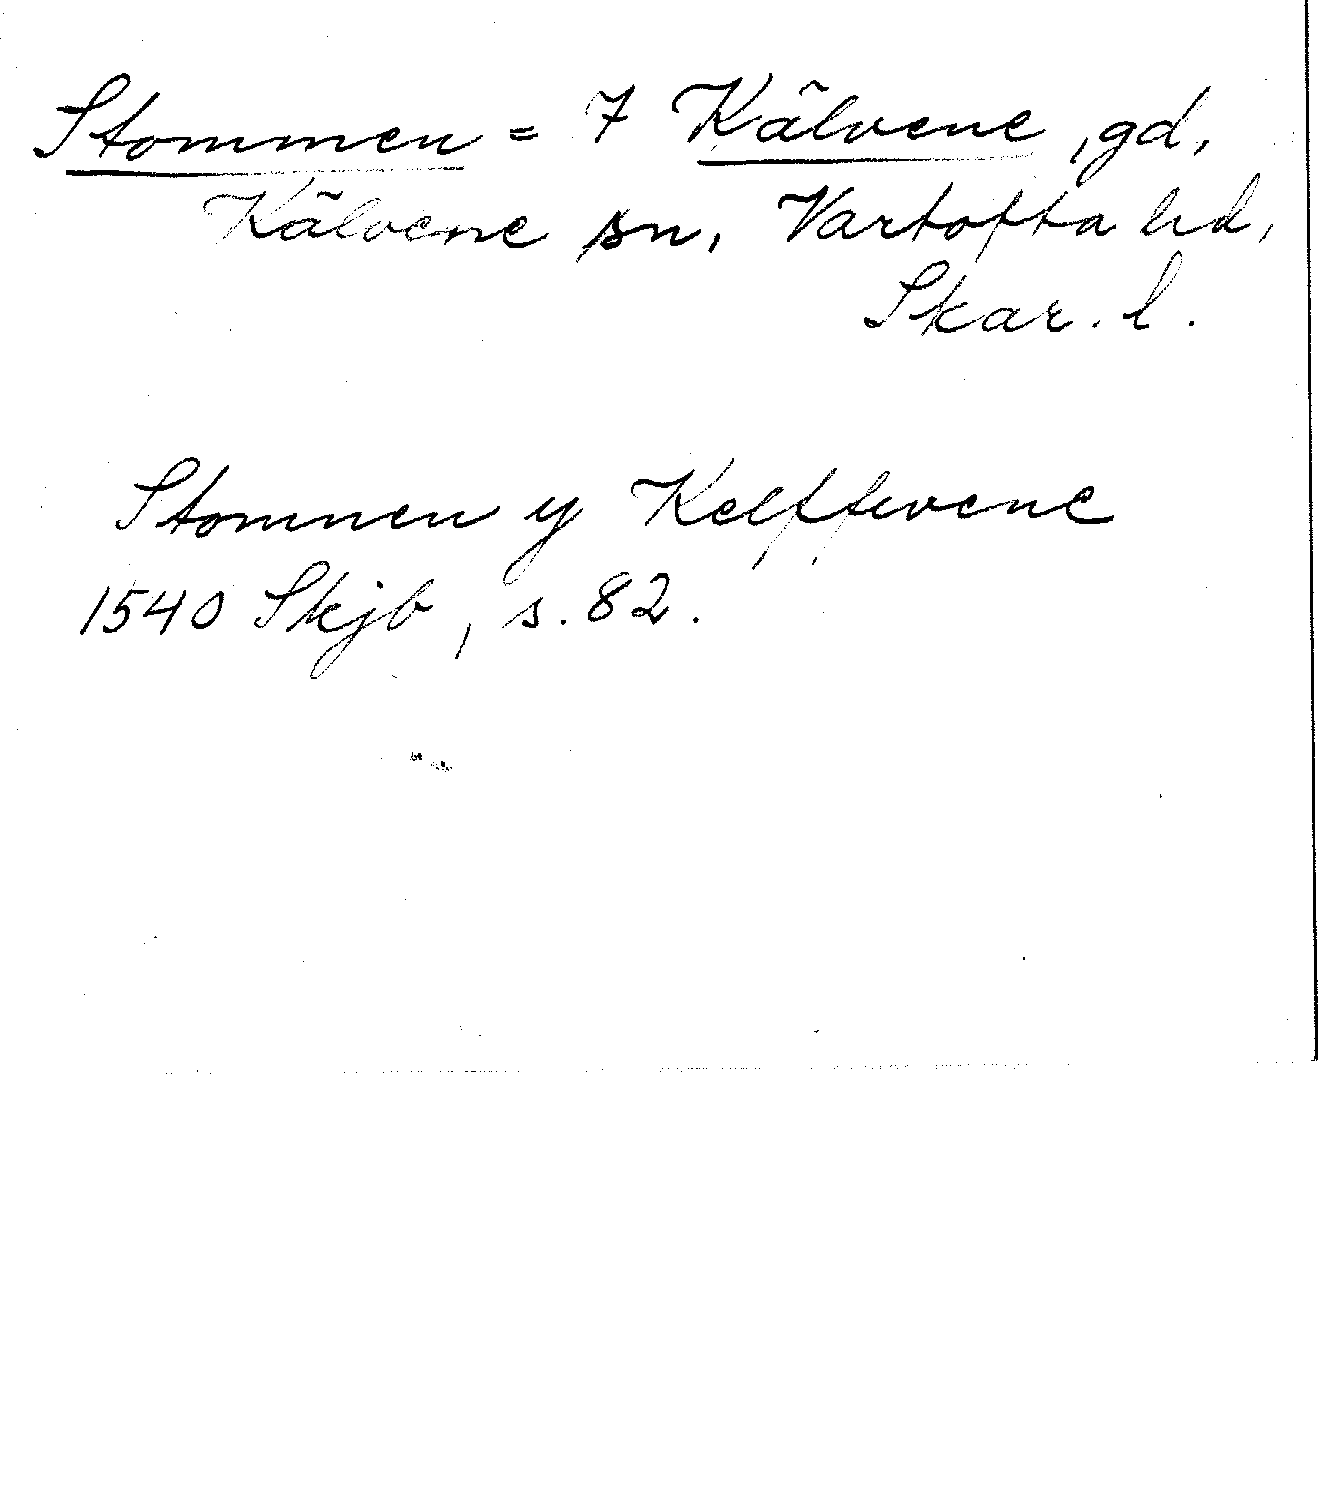 Stommen = 7 Kälvene, gd,
Kälvene sn, Vartofta hd,
Skar. l.
Stomnen y Kelffwene
1540 Skjb, s. 82.